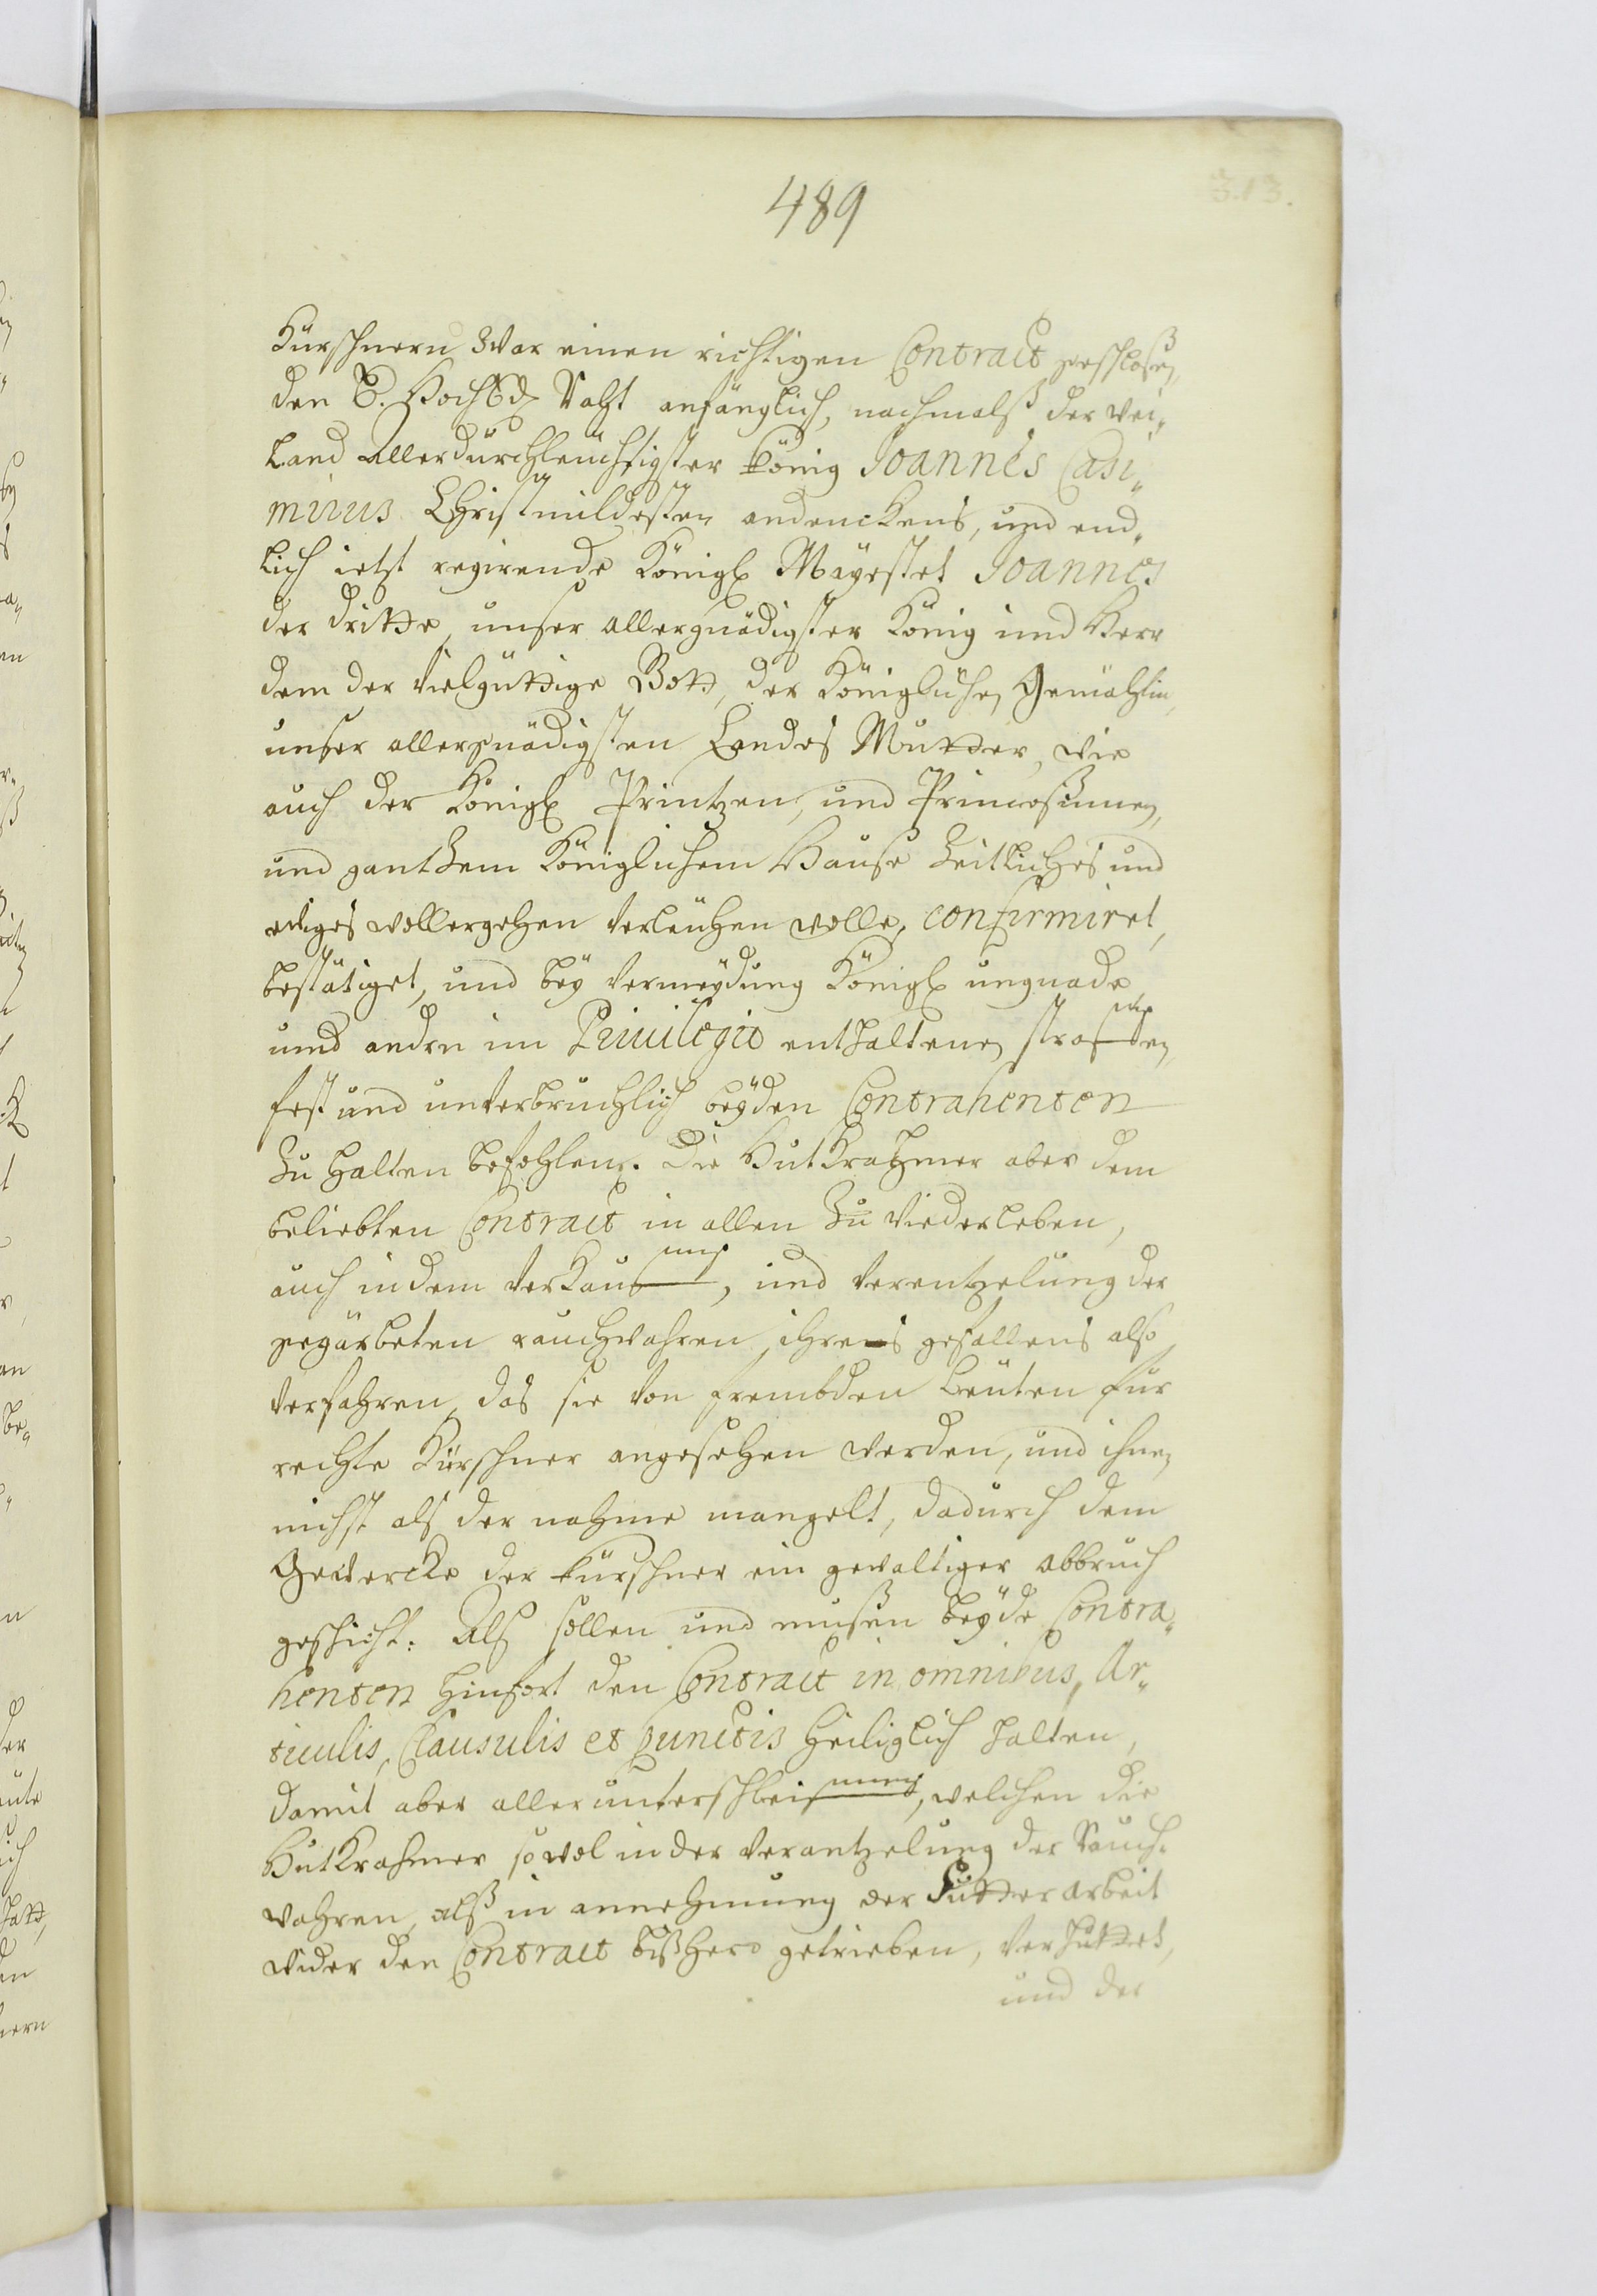 489
513.
Kürschnern zwar einen richtigen Contract geschloßen,
den E. HochEd. Raht anfänglich, nachmalß der wei„
land Allerdürchleüchtigster König Joannes Casi„
mirus Christmildesten andenckens, und end„
lich ietzt regirende Königl Mäyestet Joannes
der dritte, unser allergnädigster König und Herr
dem der Vielgüttige Gott, der Königlichen Gemahlin,
unser allergnädigsten Landes Mutter, wie
auch der Königl Printzen, und Princeßinnen,
und gantzem Königlichem Hause Zeitliches und
ewiges wollergehen verleühen wolle, confirmiret,
bestätiget, und beÿ vermeÿdung Königl ungnade
und andrn im Privilegio enthaltenen straffen,
fest und unverbruchlich beÿden Contrahenten
Zu halten befohlen. Die Hutkrahmer aber dem
beliebten Contract in allen Zu wieder leben,
auch in dem verkauf, und verentzelung der
gegärbeten rauchwahren, ihres gefallens also
verfahren, das sie von frembden Leüten für
rechte Kürschner angesehen werden, und ihnen
nichst als der nahme mangelt, dadurch dem
Gewercke der Kürschner ein gewaltiger abbruch
geschicht: Als sollen und mußen beÿde Contra„
henten hinfort den Contract in omnibus, Ar„
ticulis, Clausulis et Punctis heiliglich halten,
damit aber aller unterschleif, welchen die
Hutkrahmer sowol in der verantzelung der Rauch„
wahren, alß in annehmung der Futter arbeit
wider den Contract bißhero getrieben, verhüttet,
und der